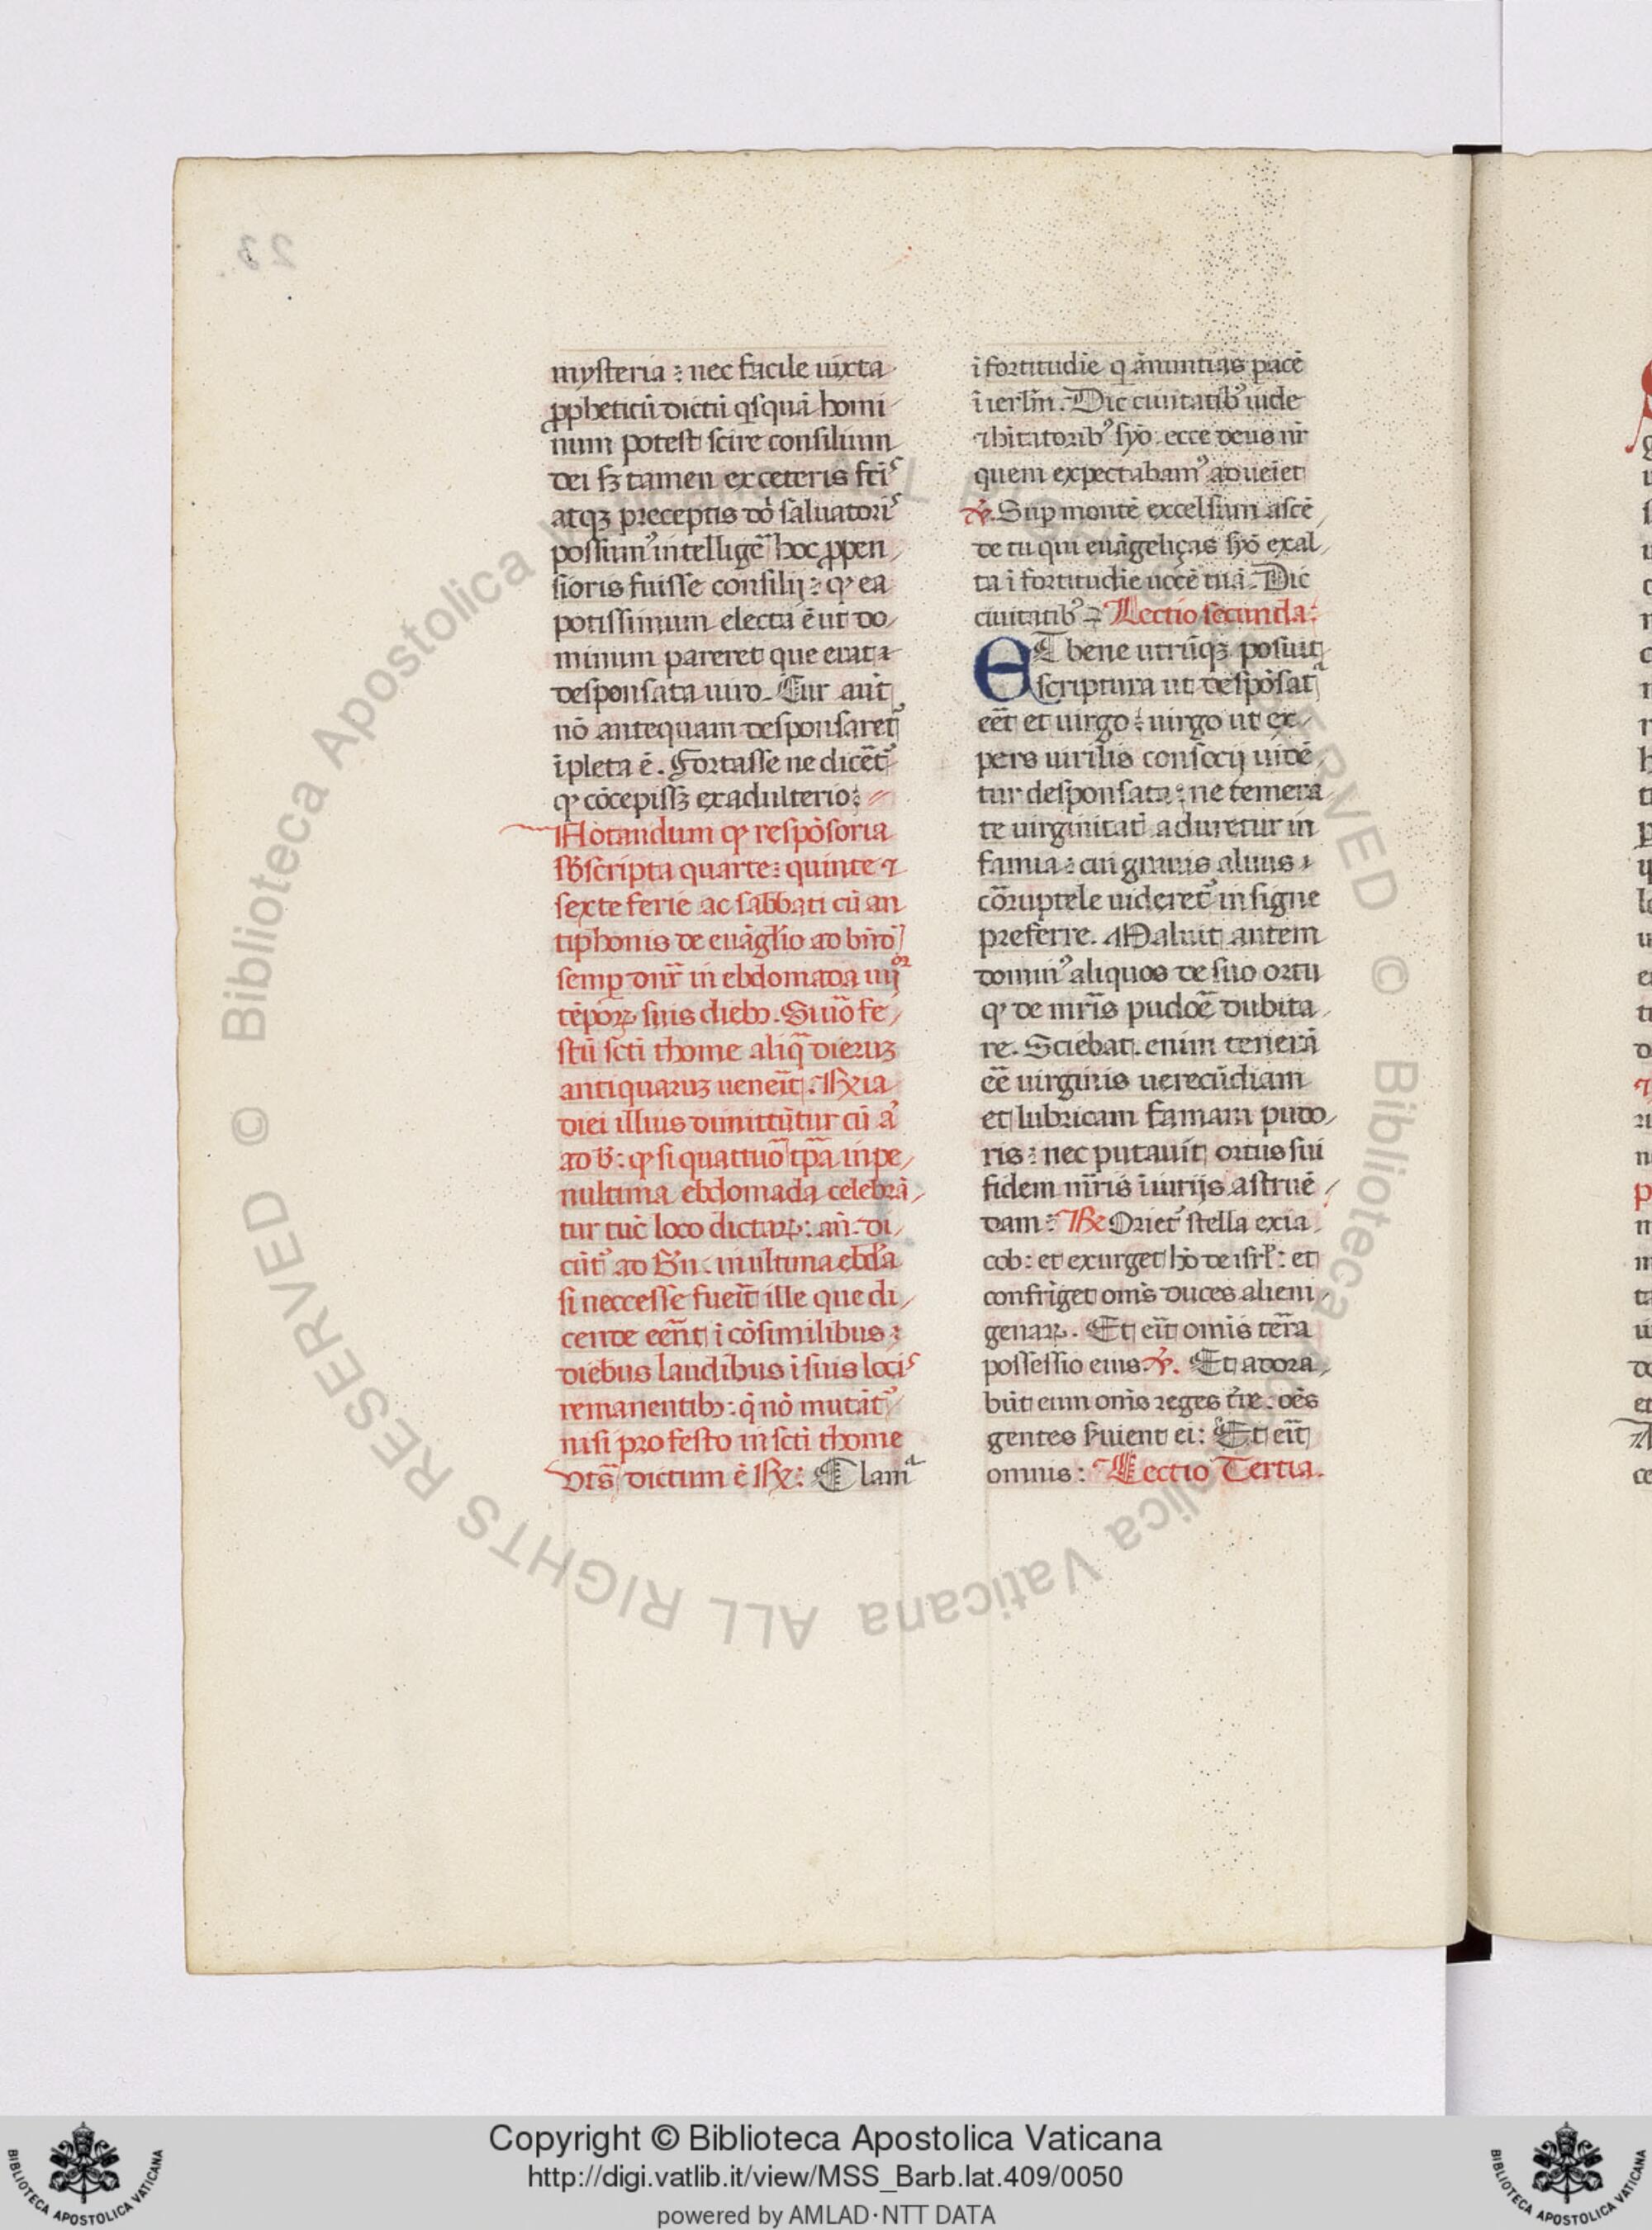 mysteria : nec facile iuxta
ꝓpheticũ dictũ qͥsquã homi
num potest scire consilium
dei sꝫ tamen ex ceteris fcĩˢ
atqꝫ preceptis dõ saluatoriˢ
possum᾽ intellige᷑ hoc ꝓpen
sioris fuisse consilij : ꝙ ea
potissimum electa ẽ ut do
minum pareret que erat
desponsata uiro. Cur aũt
nõ antequam desponsaret᾽
ĩpleta ẽ. Fortasse ne dicẽt᾽
ꝙ cõcepissꝫ ex adulterio :
Notandum ꝙ respõsoria
sb̃scripta quarte : quinte ⁊
sexte ferie ac sabbati cũ an
tiphonis de euãglĩo ad
semꝑ dñr in ebdomada iiijᵒʳ
tẽpoꝝ suis dieb᾽. Si uõ fe
stũ scti thome aliq̃ dieruꝫ
antiquaruꝫ ueneĩt.
diei illius dimittũtur cũ ã
ad b̃ : ꝙ si quattuõ tp̃a in pe
nultima ebdomada celebrã
tur tũc loco dictaꝝ : añ. di
cũt᾽ ad Bñ. in ultima ebd̃a
si neccesse fueĩt ille que di
cende eẽnt ĩ cõsimilibus
diebus laudibus ĩ suis lociˢ
remanentib᾽ : q̃ nõ mutãt᾽
nisi pro festo in scti thome
vts̃ dictum ẽ ℞ : Clamᵃ
ĩ fortitudiẽ q ãnuntias pacẽ
ĩ ierlm̃. Dic ciuitatib᾽ iude
⁊ hĩtatorib᾽ syõ. ecce deus nr̃
quem expectabam᾽ adueiet
℣. Suꝑ montẽ excelsum ascẽ
de tu qui euãgeliças syõ exal
ta ĩ fortitudiẽ uocẽ tuã. Dic
ciuitatib᾽ ⁊ Lectio secunda :
ET bene utrũqꝫ posuit
scriptura ut despõsatᵃ
eẽt et uirgo : uirgo ut ex
pers uirilis consocij uidẽ
tur desponsata : ne temera
te uirginitatĩ aduretur in
famia : cui grauis aluus
cõruptele uideret᾽ insigne
preferre. Maluit autem
domin᾽ aliquos de suo ortu
ꝙ de mr̃is pudoẽ dubita
re. Sciebat enim tenerã
eẽ uirginis uerecũdiam
et lubricam famam pudo
ris : nec putauit ortus sui
fidem mr̃is ĩiurijs astruẽ
dam : ℞ Oriet᾽ stella ex ia
cob : et exurget hõ de isrl̃ : et
confriget om̃s duces alieni
genaꝝ. Et eĩt omĩs tẽra
possessio eius. ℣. Et adora
bũt eum om̃s reges tr̃e. oẽs
gentes s̃uient ei : Et eĩt
omnis : Lectio Tertia.
23.
Copyright © Biblioteca Apostolica Vaticana
http://digi.vatlib.it/view/MSS_Barb.lat.409/0050
powered by AMLAD·NTT DATA
© Biblioteca Apostolica Vaticana ALL RIGHTS RESERVED © Biblioteca Apostolica Vaticana ALL RIGHTS RESERVED
BIBLIOTECA APOSTOLICA VATICANA
BIBLIOTECA APOSTOLICA VATICANA